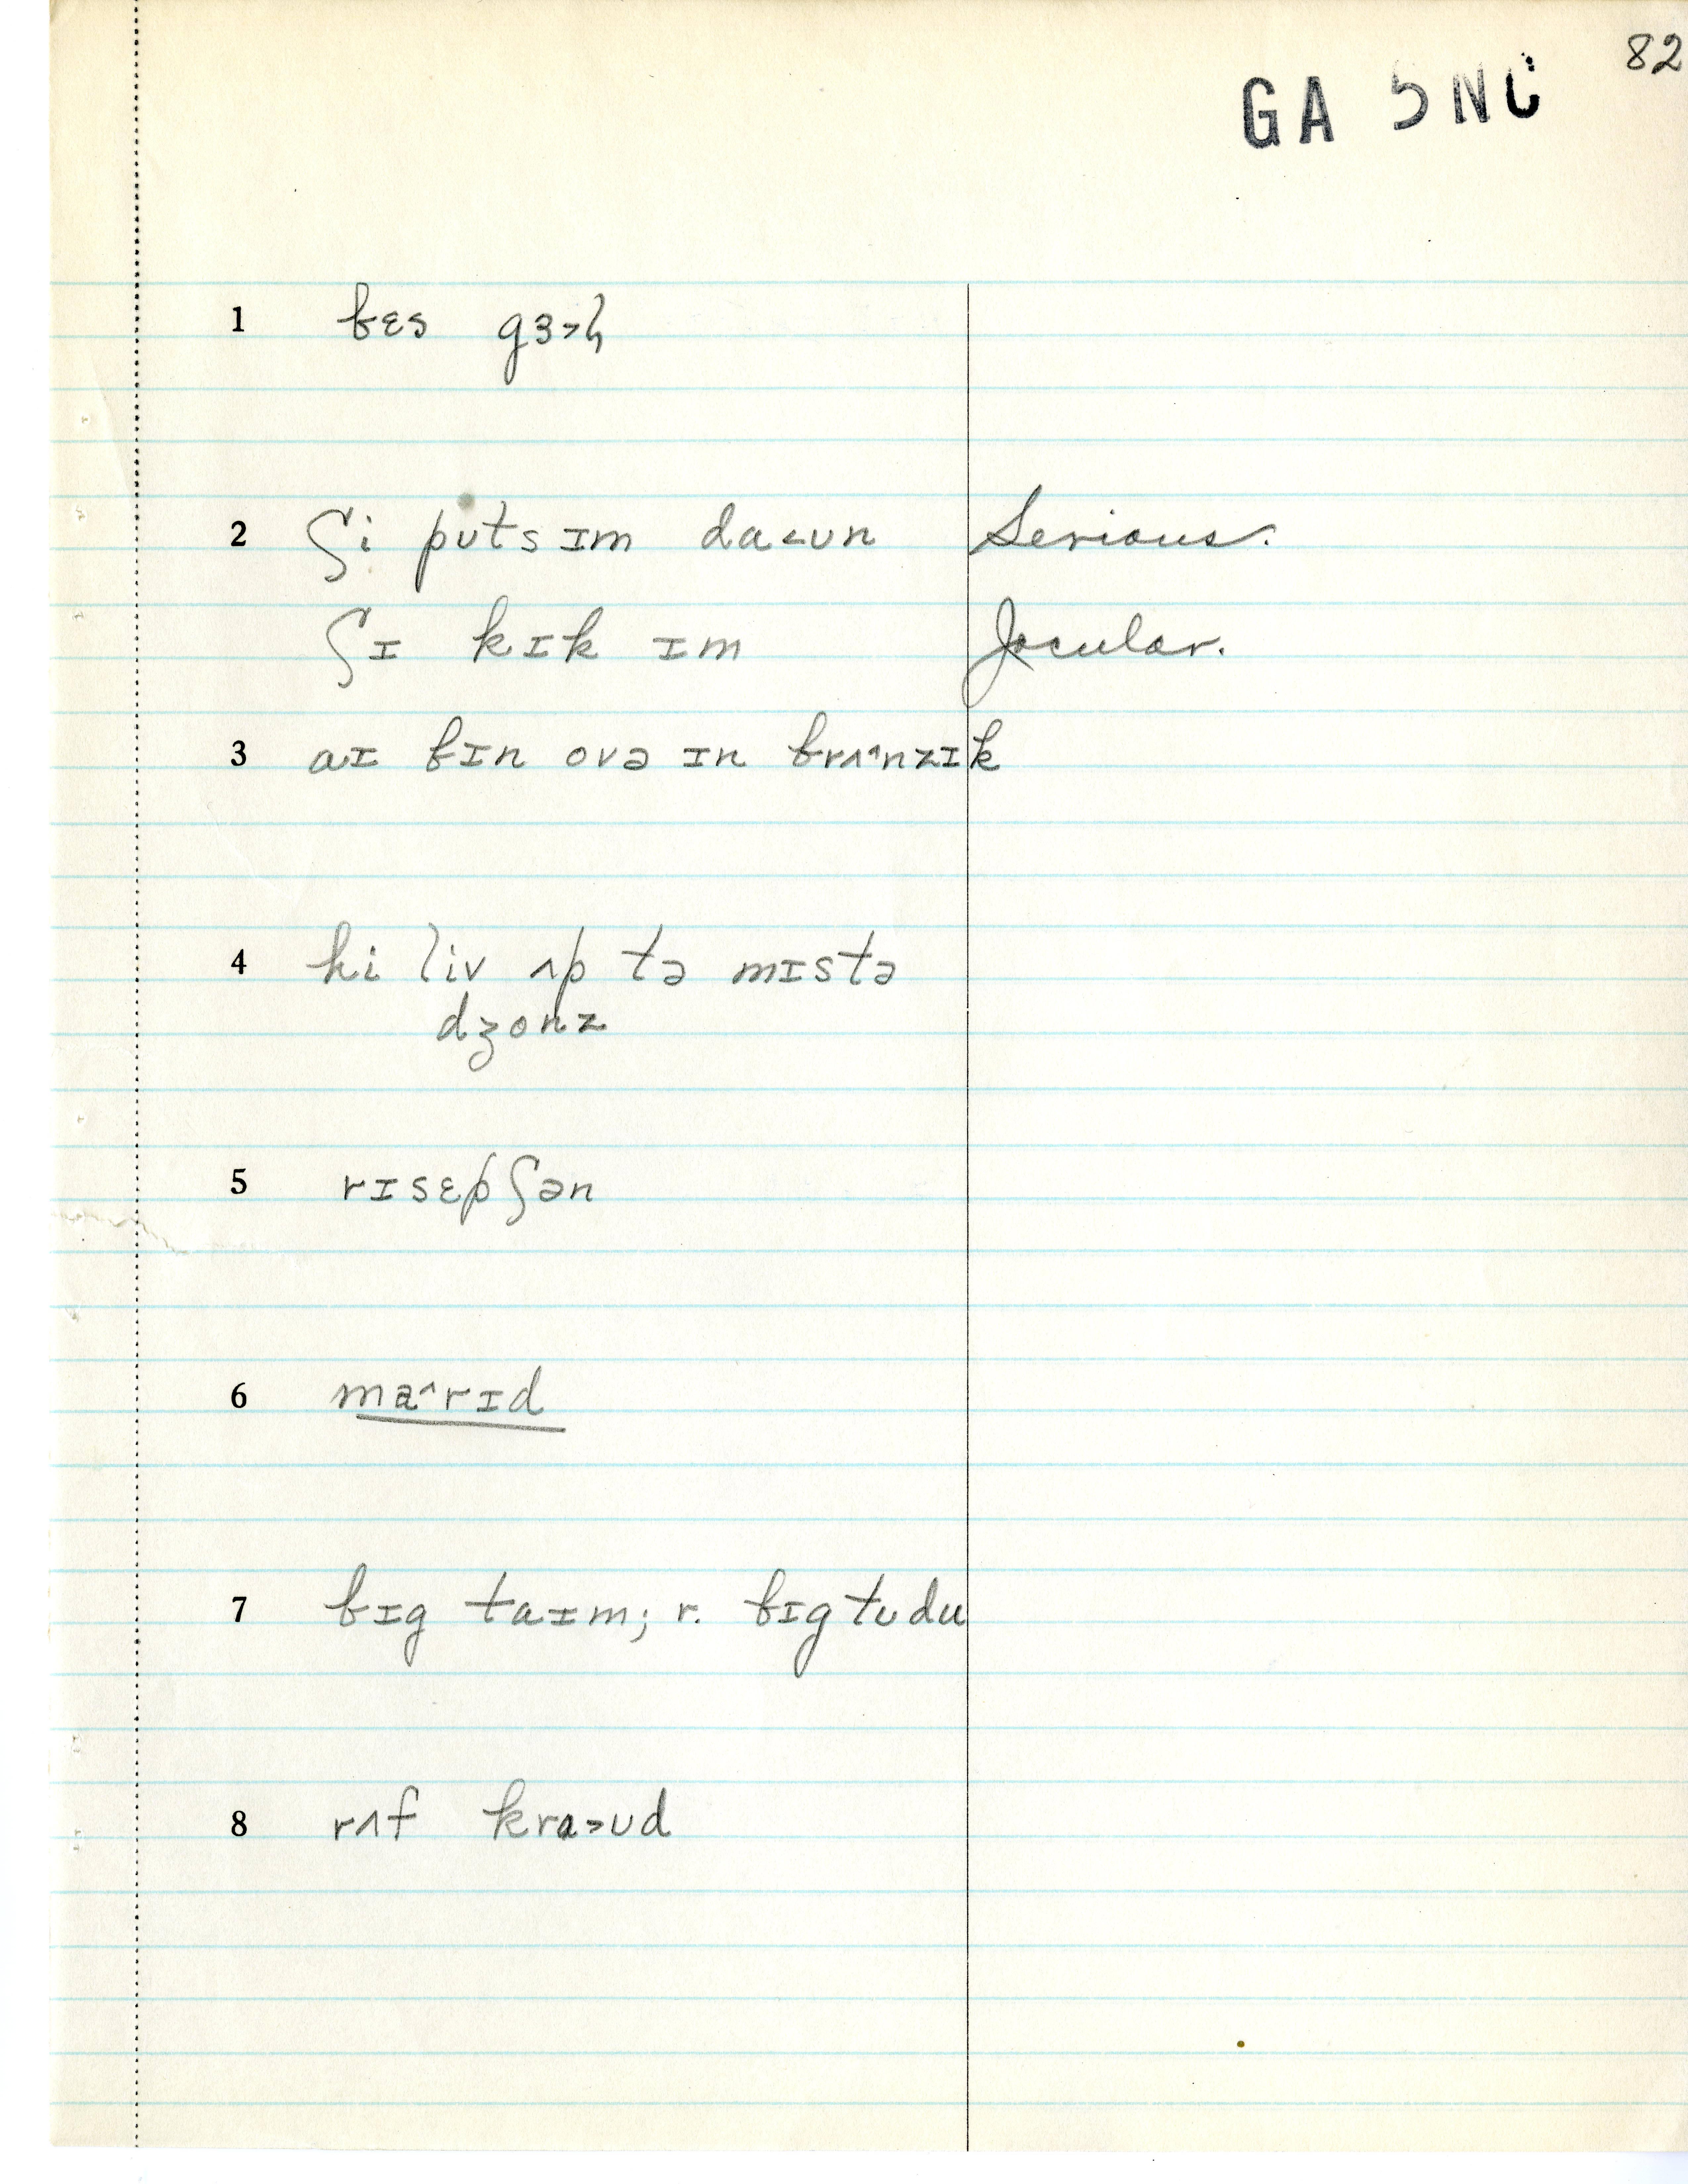 82
GA 5NC
1 bɛs gɜ˃ɫ
2 ʃi pʊts ɪm da˂ʊn Serious.
ʃɪ kɪk ɪm Jocular.
3 aɪ bɪn ovə ɪn brʌ^nzɪk
4 hi liv ʌp tə mɪstə
dʒonz
5 rɪsɛpʃən
6 ma^rɪd
7 bɪg taɪm; r. bɪg tʊdu
8 rʌf kra˃ʊd